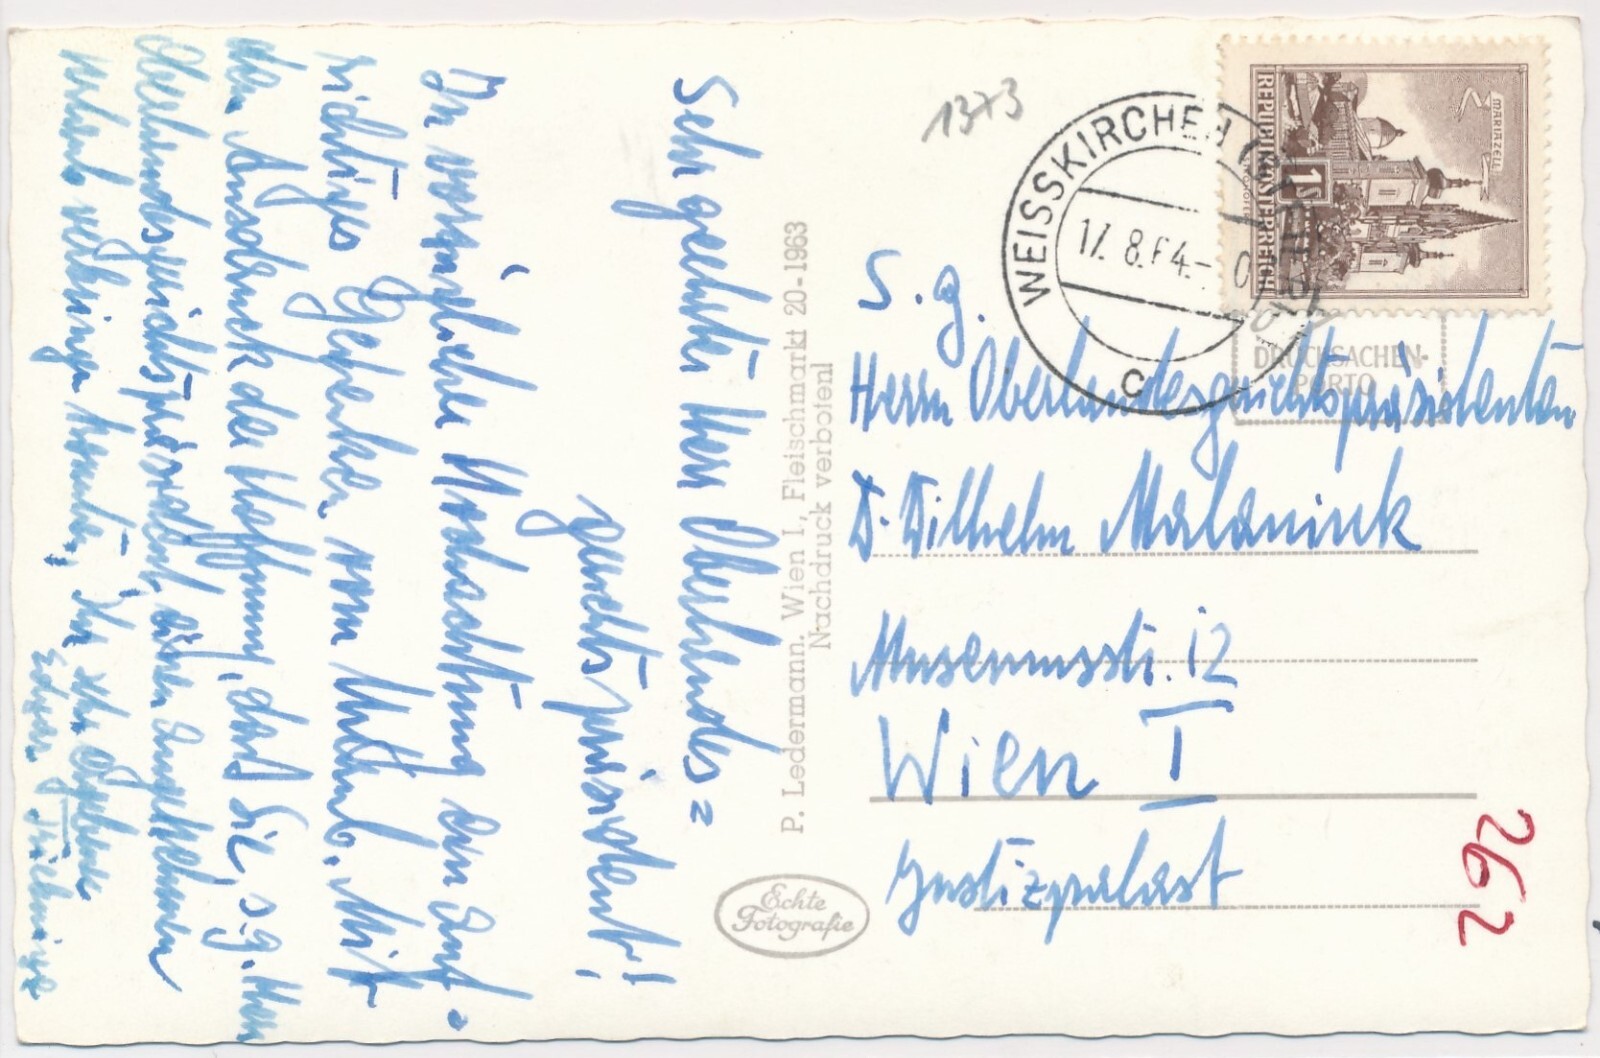 Sehr geehrter Herr Oberlandes=
gerichtspräsident!
In vorzüglicher Hochachtung ein auf=
richtiges Gedenken vom Urlaub. Mit
dem Ausdruck der Hoffnung, daß Sie, s.g. Herr
Oberlandesgerichtspräsident, einen angenehmen
Urlaub verbringen konnten, Ihr sehr ergebener
P. Ledermann. Wien I, Fleischmarkt 20-1963
Nachdruck verboten!
Echte
Fotografie
1373
WEISSKIRCHEN
17.8.64.-
C
REPUBLIK ÖSTERREICH
MARIAZELL
1S
DRUCKSACHEN-
PORTO
S. g.
Herrn Oberlandesgerichtspräsidenten
Dr. Wilhelm Malaniuk
Museumsstr. 12
Wien I
Justizpalast
262